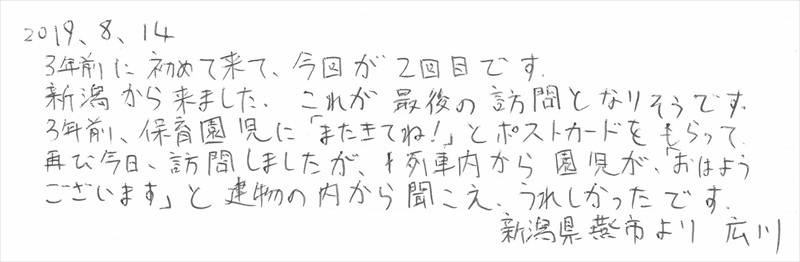 2019、8、14
3年前に初めて来て、今回が2回目です.
新潟から来ました. これが最後の訪問となりそうです.
3年前、保育園児に「またきてね!」とポストカードをもらって.
再び今日、訪問しましたが、列車内から園児が、「おはよう
ございます」と建物の内から聞こえ、うれしかったです.
新潟県燕市より 広川